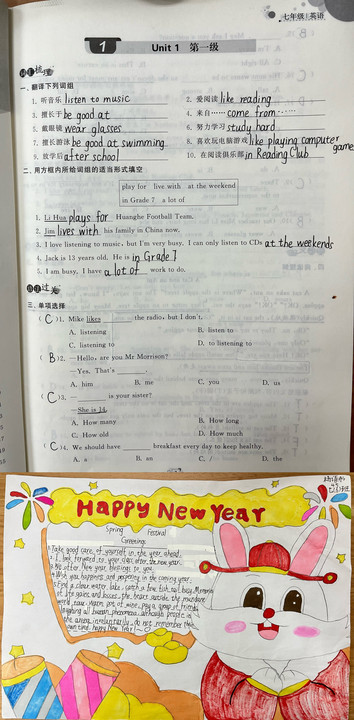 七年级·英语
1 Unit 1 第一级
词汇梳理
一、翻译下列词组
1. 听音乐 listen to music 2. 爱阅读 like reading
3. 擅长于 be good at 4. 来自…… come from……
5. 戴眼镜 wear glasses 6. 努力学习 study hard
7. 擅长游泳 be good at swimming 8. 喜欢玩电脑游戏 like playing computer game
9. 放学后 after school 10. 在阅读俱乐部 in Reading Club
二、用方框内所给词组的适当形式填空
play for live with at the weekend
in Grade 7 a lot of
1. Li Hua plays for Huanghe Football Team.
2. Jim lives with his family in China now.
3. I love listening to music, but I'm very busy. I can only listen to CDs at the weekends
4. Jack is 13 years old. He is in Grade 7
5. I am busy. I have a lot of work to do.
过关
三、单项选择
( C )1. Mike likes ______ the radio, but I don't.
A. listening B. listen to
C. listening to D. to listening to
( B )2. —Hello, are you Mr Morrison?
—Yes. That's ______.
A. him B. me C. you D. us
( C )3. — ______ is your sister?
—She is 14.
A. How many B. How long
C. How old D. How much
( C )4. We should have ______ breakfast every day to keep healthy.
A. a B. an C. / D. the
Happy New Year
Spring Festival
Greetings
Take good care of yourself in the year ahead.
I look forward to your
New Year blessing to you.
Wish you happiness and prosperity in the coming year.
happy New Year!